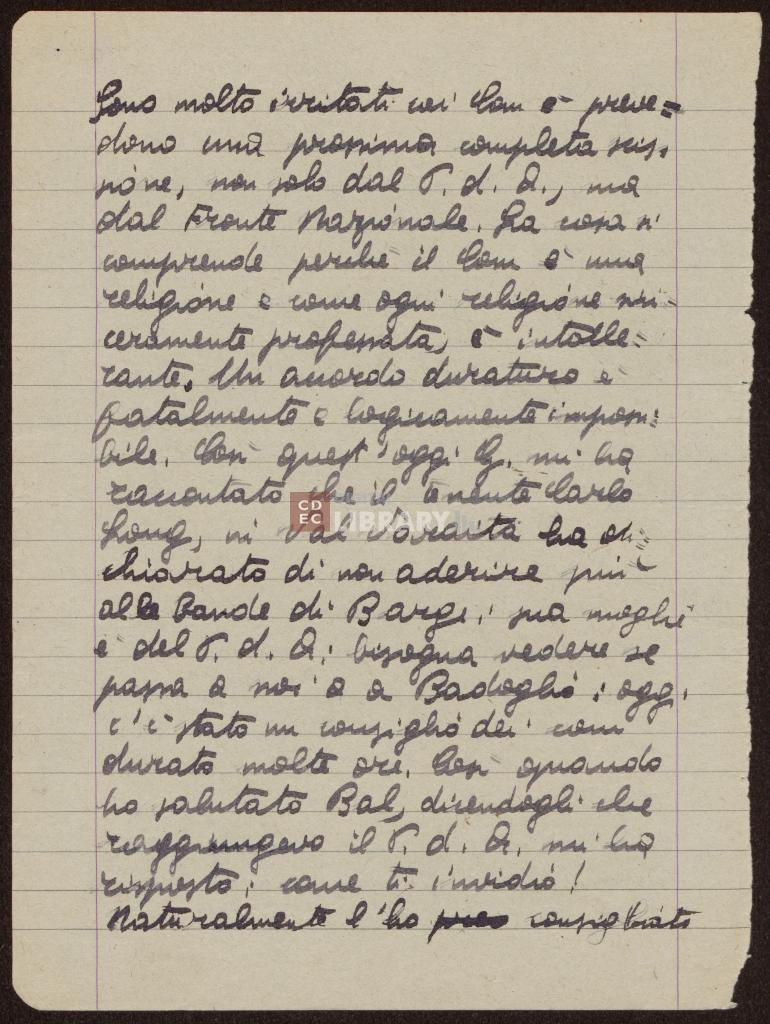 Sono molto irritati coi Com e preve=
dono una prossima completa scis-
sione, non solo dal P. d. A., ma
dal Fronte Nazionale. La cosa si
comprende perché il Com è una
religione e come ogni religione sin-
ceramente professata, è intolle=
rante. Un accordo duraturo è
fatalmente e logicamente impossi=
bile. Così quest'oggi G. mi ha
raccontato che il tenente Carlo
Long, in Val Varaita ha di=
chiarato di non aderire più
alle bande di Barge; sua moglie
è del P. d. A.; bisogna vedere se
passa a noi o a Badoglio; oggi
c'è stato un consiglio dei com
durato molte ore. Così quando
ho salutato Bal, dicendogli che
raggiungevo il P. d. A. mi ha
risposto: come ti invidio!
Naturalmente l'ho consigliato
CDEC LIBRARY